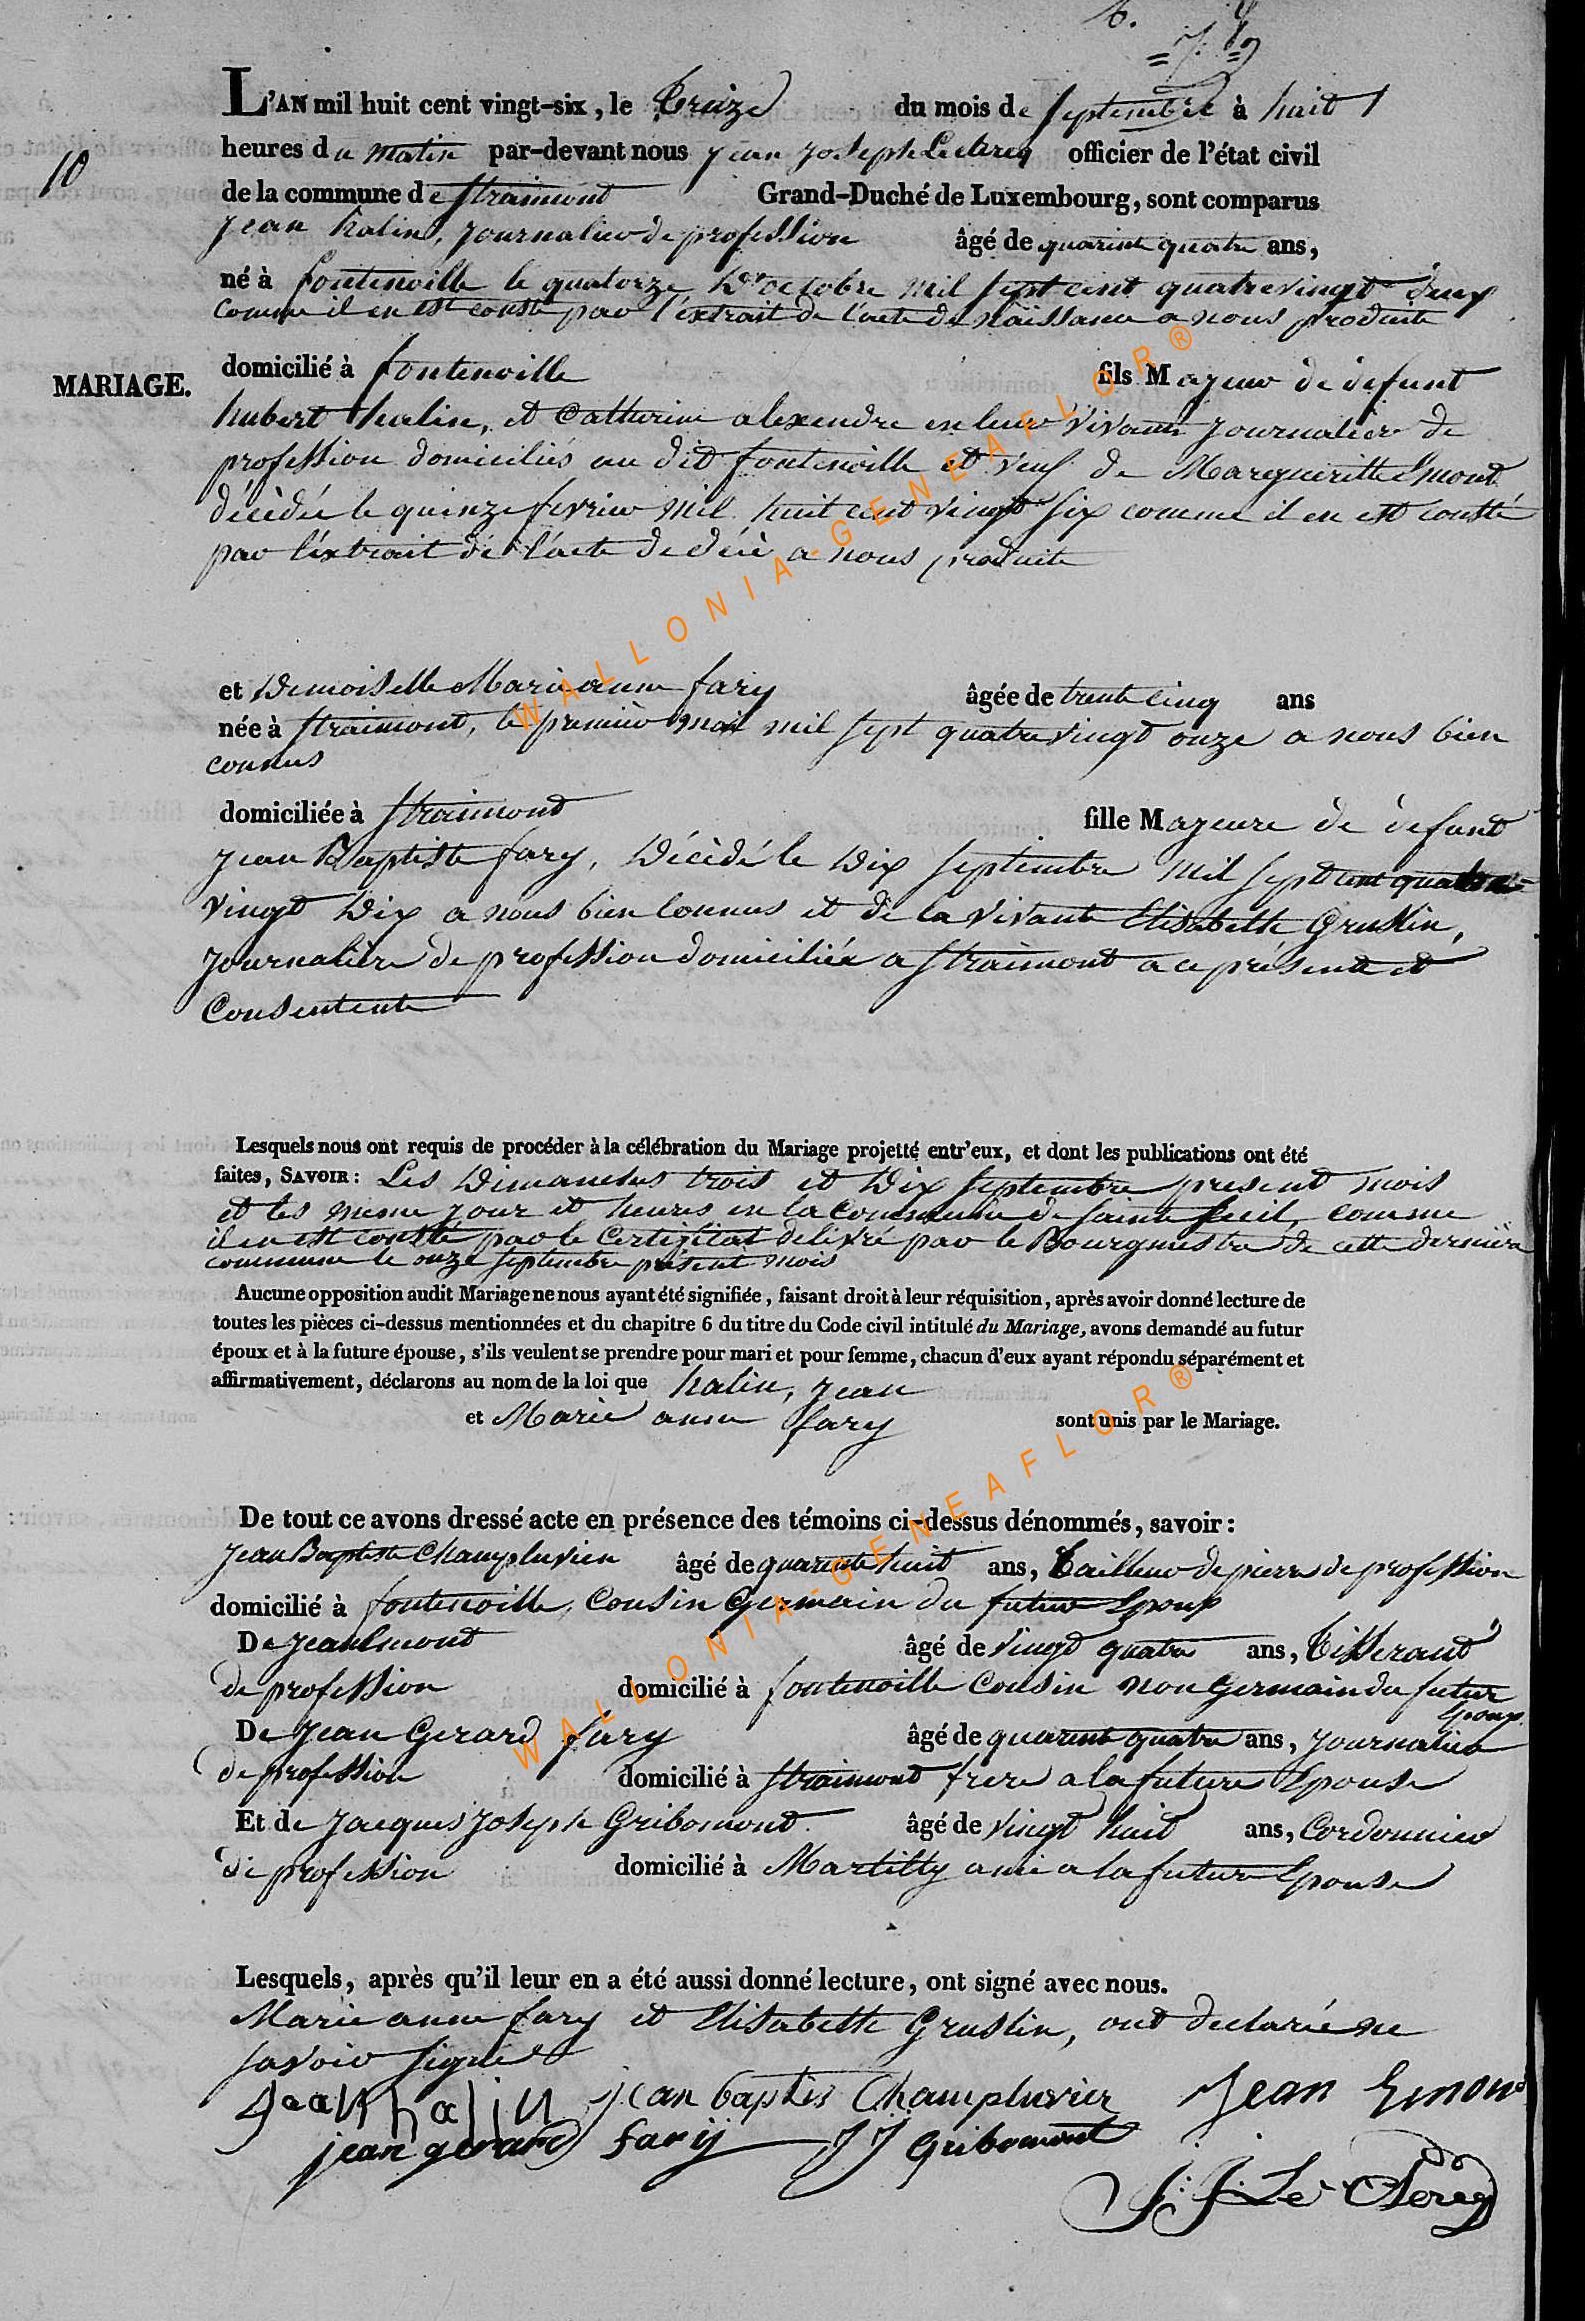 6.
10
L'AN mil huit cent vingt-six, le treize du mois de septembre à huit
heures du matin par-devant nous jean joseph Leclercq officier de l'état civil
de la commune de straimont Grand-Duché de Luxembourg, sont comparus
jean halin, journalier de profession âgé de quarente quatre ans,
né à fontenoille le quatorze D'octobre mil sept cent quatrevingt deux
comme il en est consté par l'extrait de l'acte de naissance a nous produite
MARIAGE.
domicilié à fontenoille fils Majeur de défunt
hubert halin, et Catherine alexendre en leur vivants journalier de
profession domiciliés au dit fontenoille et veuf de Margueritte Emond
décédée le quinze fevrier mil huit cent vingt six comme il en est consté
par l'extrait de l'acte de décè a nous produite
et Demoiselle Marie anne fary âgée de trente cinq ans
née à straimont, le premier mai mil sept quatrevingt onze a nous bien
connus
domiciliée à straimont fille Majeure de défunt
jean Baptiste fary, Décédé le Dix septembre mil sept cent quatre
vingt Dix a nous bien connus et de la vivante Elisabette Gruslin,
journalière de profession domiciliée a straimont a ce présente et
Consentente
Lesquels nous ont requis de procéder à la célébration du Mariage projetté entr'eux, et dont les publications ont été
faites, SAVOIR: Les Dimanches trois et Dix septembre present mois
et les meme jour et heures en la Commune de sainte Cecil, comme
il en est consté par le Certificat delivré par le Bourgmestre de cette dernière
commune le onze septembre présent mois
Aucune opposition audit Mariage ne nous ayant été signifiée, faisant droit à leur réquisition, après avoir donné lecture de
toutes les pièces ci-dessus mentionnées et du chapitre 6 du titre du Code civil intitulé du Mariage, avons demandé au futur
époux et à la future épouse, s'ils veulent se prendre pour mari et pour femme, chacun d'eux ayant répondu séparément et
affirmativement, déclarons au nom de la loi que halin, jean
et Marie anne fary sont unis par le Mariage.
De tout ce avons dressé acte en présence des témoins ci-dessus dénommés, savoir:
jean Baptiste Champluvier âgé de quarente huit ans, tailleur de pierre de profession
domicilié à fontenoille, Cousin Germain du futur Epoux
De jean Emond âgé de vingt quatre ans, tisserand
de profession domicilié à fontenoille Cousin non Germain du futur
Epoux
De jean Gerard fary âgé de quarent quatre ans, journalier
de profession domicilié à straimont frere a la future Epouse
Et de jacques joseph Gribomont âgé de vingt huit ans, Cordonnier
de profession domicilié à Martilly ami a la future Epouse
Lesquels, après qu'il leur en a été aussi donné lecture, ont signé avec nous.
Marie anne fary et Elisabette Gruslin, ont declarée ne
savoir signer
jean halin jean baptis Champluvier Jean Emond
jean gerard farÿ JJ Gribomont
J. J. Le Clercq
WALLONIA-GENEAFLOR®
WALLONIA-GENEAFLOR®